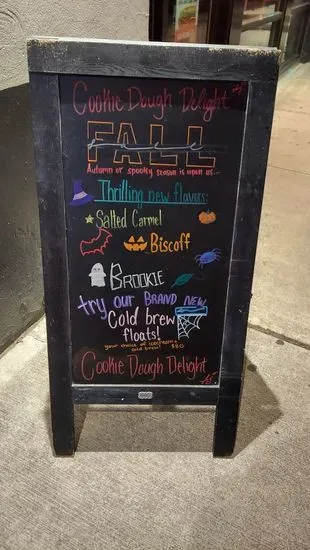 Cookie Dough Delight
FALL
Autumn or spooky season is upon us...
Thrilling new flavors:
Salted Carmel
Biscoff
BROOKIE
try our BRAND NEW
Cold brew
floats!
your choice of icecream &
cold brew!
Cookie Dough Delight